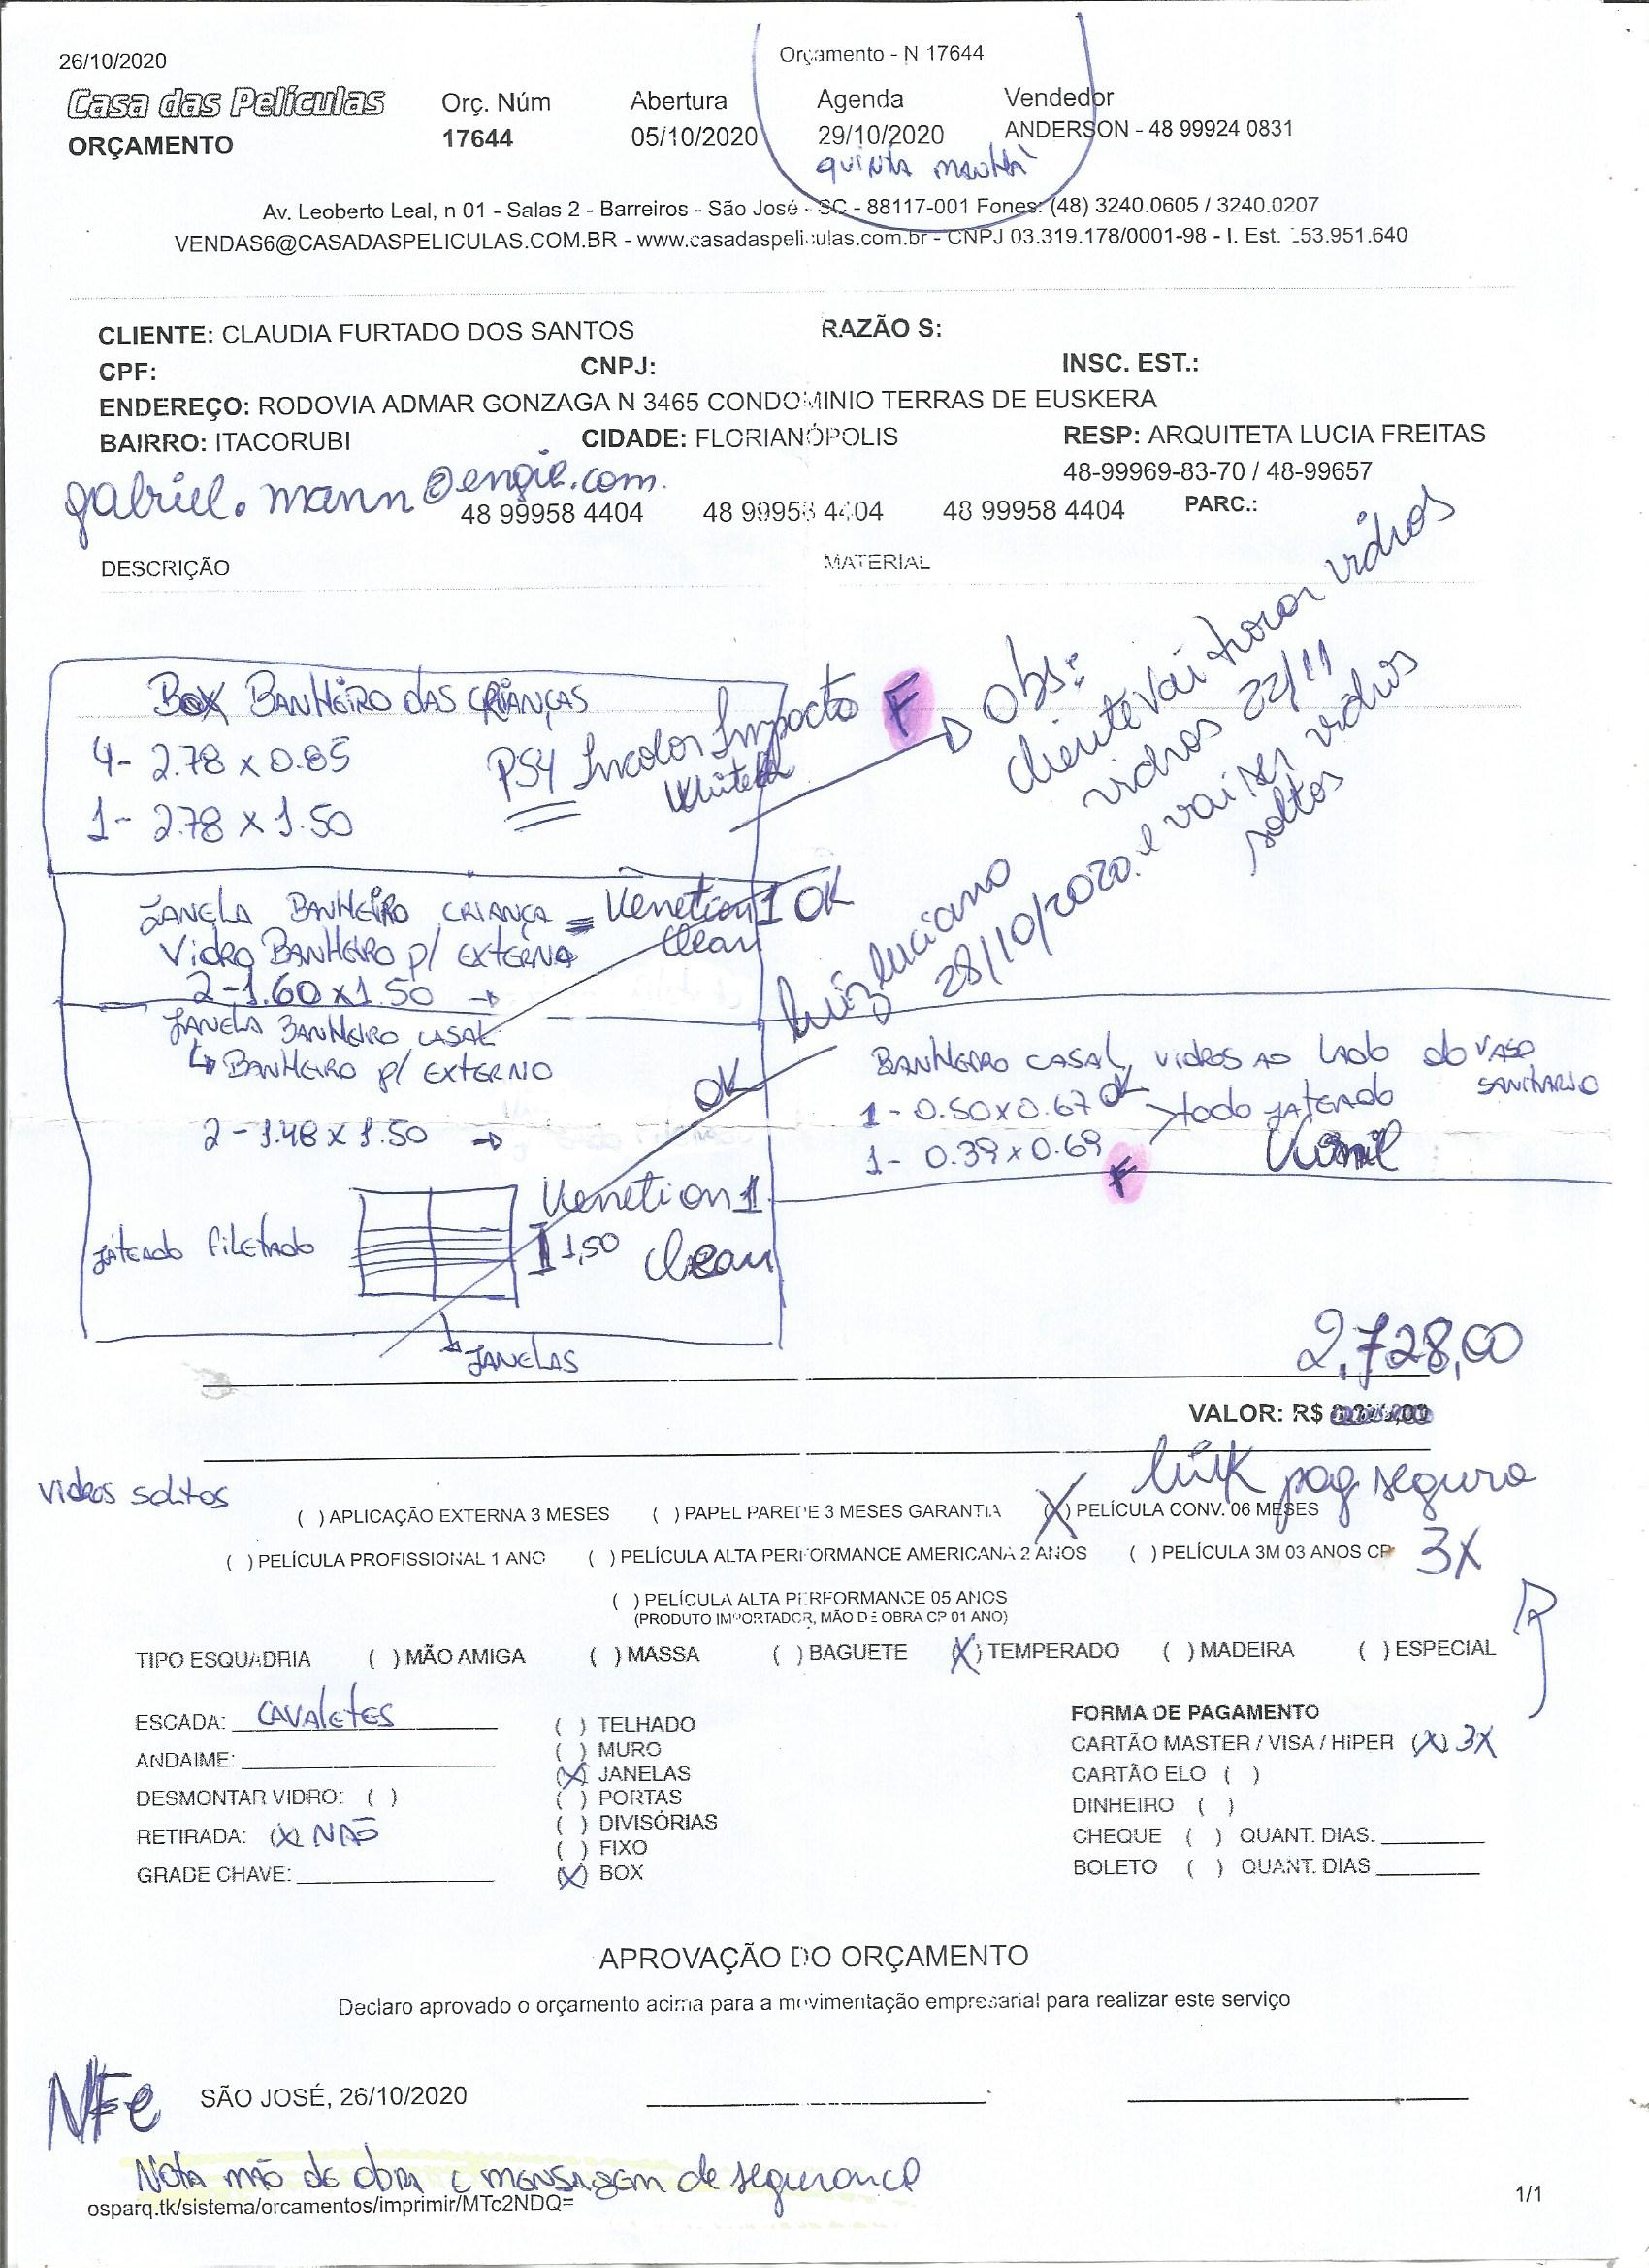 26/10/2020
Orçamento - N 17644
Casa das Películas
ORÇAMENTO
Orç. Núm
17644
Abertura
05/10/2020
Agenda
29/10/2020
quinta manhã
Vendedor
ANDERSON - 48 99924 0831
Av. Leoberto Leal, n 01 - Salas 2 - Barreiros - São José - SC - 88117-001 Fones: (48) 3240.0605 / 3240.0207
VENDAS6@CASADASPELICULAS.COM.BR - www.casadaspeliculas.com.br - CNPJ 03.319.178/0001-98 - I. Est. 253.951.640
CLIENTE: CLAUDIA FURTADO DOS SANTOS RAZÃO S:
CPF: CNPJ: INSC. EST.:
ENDEREÇO: RODOVIA ADMAR GONZAGA N 3465 CONDOMINIO TERRAS DE EUSKERA
BAIRRO: ITACORUBI CIDADE: FLORIANÓPOLIS RESP: ARQUITETA LUCIA FREITAS
48-99969-83-70 / 48-99657
gabriel.mann@engie.com.
48 99958 4404 48 99958 4404 48 99958 4404 PARC.:
DESCRIÇÃO MATERIAL
BOX BANHEIRO DAS CRIANÇAS
4- 2.78 x 0.85
1- 2.78 x 1.50
PS4 Incolor Impacto F
Obs:
cliente vai trocar vidros
vidros 22/11
Luiz Luciano
28/10/2020. e vai ser vidros
soltos
JANELA BANHEIRO CRIANÇA = Venetion 1 OK
Vidro BANHEIRO p/ EXTERNA Clean
2-1.60x1.50
JANELA BANHEIRO CASAL
BANHEIRO p/ EXTERNO
OK
2-1.48 x 1.50
BANHEIRO CASAL, vidros AO lado do VASO
SANITARIO
1- 0.50x0.67 OK
todo JATEADO
1- 0.39x0.69
F
JATEADO filetado
Venetion 1
1,50 Clean
JANELAS
2.728,00
VALOR: R$
link pag seguro
vidros soltos
( ) APLICAÇÃO EXTERNA 3 MESES ( ) PAPEL PAREDE 3 MESES GARANTIA (X) PELÍCULA CONV. 06 MESES
( ) PELÍCULA PROFISSIONAL 1 ANO ( ) PELÍCULA ALTA PERFORMANCE AMERICANA 2 ANOS ( ) PELÍCULA 3M 03 ANOS CP 3X
( ) PELÍCULA ALTA PERFORMANCE 05 ANOS
(PRODUTO IMPORTADOR, MÃO DE OBRA CP 01 ANO)
TIPO ESQUADRIA ( ) MÃO AMIGA ( ) MASSA ( ) BAGUETE (X) TEMPERADO ( ) MADEIRA ( ) ESPECIAL
ESCADA: CAVALETES
ANDAIME:
DESMONTAR VIDRO: ( )
RETIRADA: (X) NÃO
GRADE CHAVE:
( ) TELHADO
( ) MURO
(X) JANELAS
( ) PORTAS
( ) DIVISÓRIAS
( ) FIXO
(X) BOX
FORMA DE PAGAMENTO
CARTÃO MASTER / VISA / HIPER (X) 3X
CARTÃO ELO ( )
DINHEIRO ( )
CHEQUE ( ) QUANT. DIAS:
BOLETO ( ) QUANT. DIAS
APROVAÇÃO DO ORÇAMENTO
Declaro aprovado o orçamento acima para a movimentação empresarial para realizar este serviço
NFe
SÃO JOSÉ, 26/10/2020
Nota mão de obra e mensagem de segurança
osparq.tk/sistema/orcamentos/imprimir/MTc2NDQ=
1/1